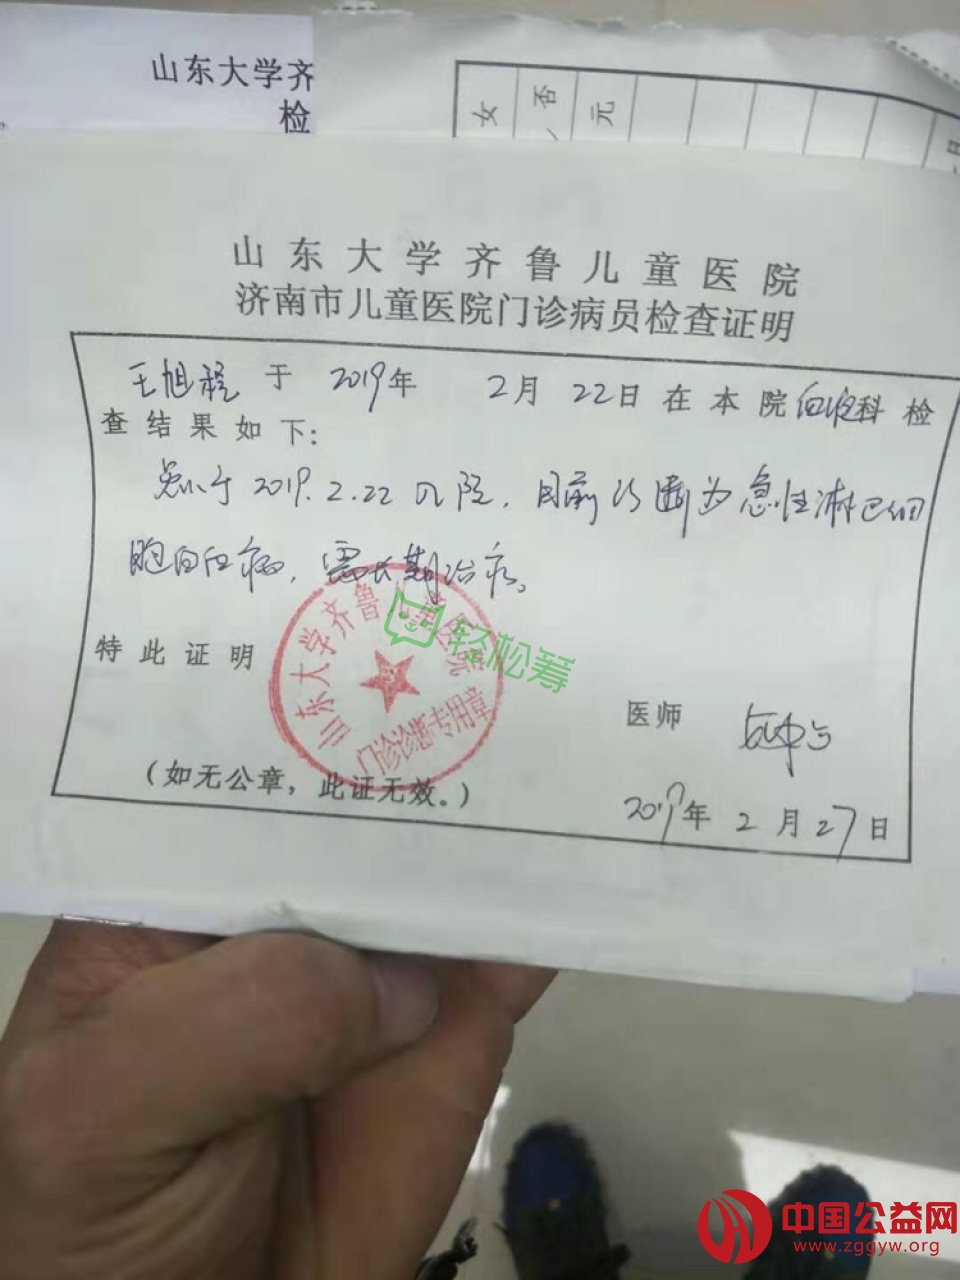 山东大学齐
检
女
否
元
山东大学齐鲁儿童医院
济南市儿童医院门诊病员检查证明
王旭程 于 2019年 2月 22日 在本院 血液科 检
查结果如下:
患儿于2019.2.22入院,目前诊断为急性淋巴细
胞白血病,需长期治疗。
山东大学齐鲁儿童医院
门诊诊断专用章
轻松筹
特此证明
医师
(如无公章,此证无效。)
2019年 2月 27日
中国公益网
www.zggyw.org